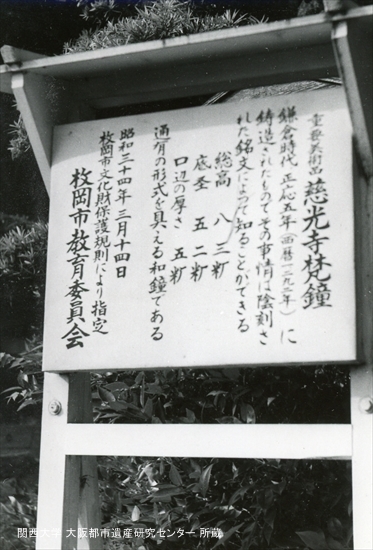 重要美術品 慈光寺梵鐘
鎌倉時代 正応五年(西暦一二九二年)に
鋳造されたものでその事情は陰刻さ
れた銘文によって知ることができる
総高 八三糎
底圣 五二糎
口辺の厚さ 五糎
通有の形式を具える和鐘である
昭和三十四年三月十四日
枚岡市文化財保護規則により指定
枚岡市教育委員会
関西大学 大阪都市遺産研究センター 所蔵